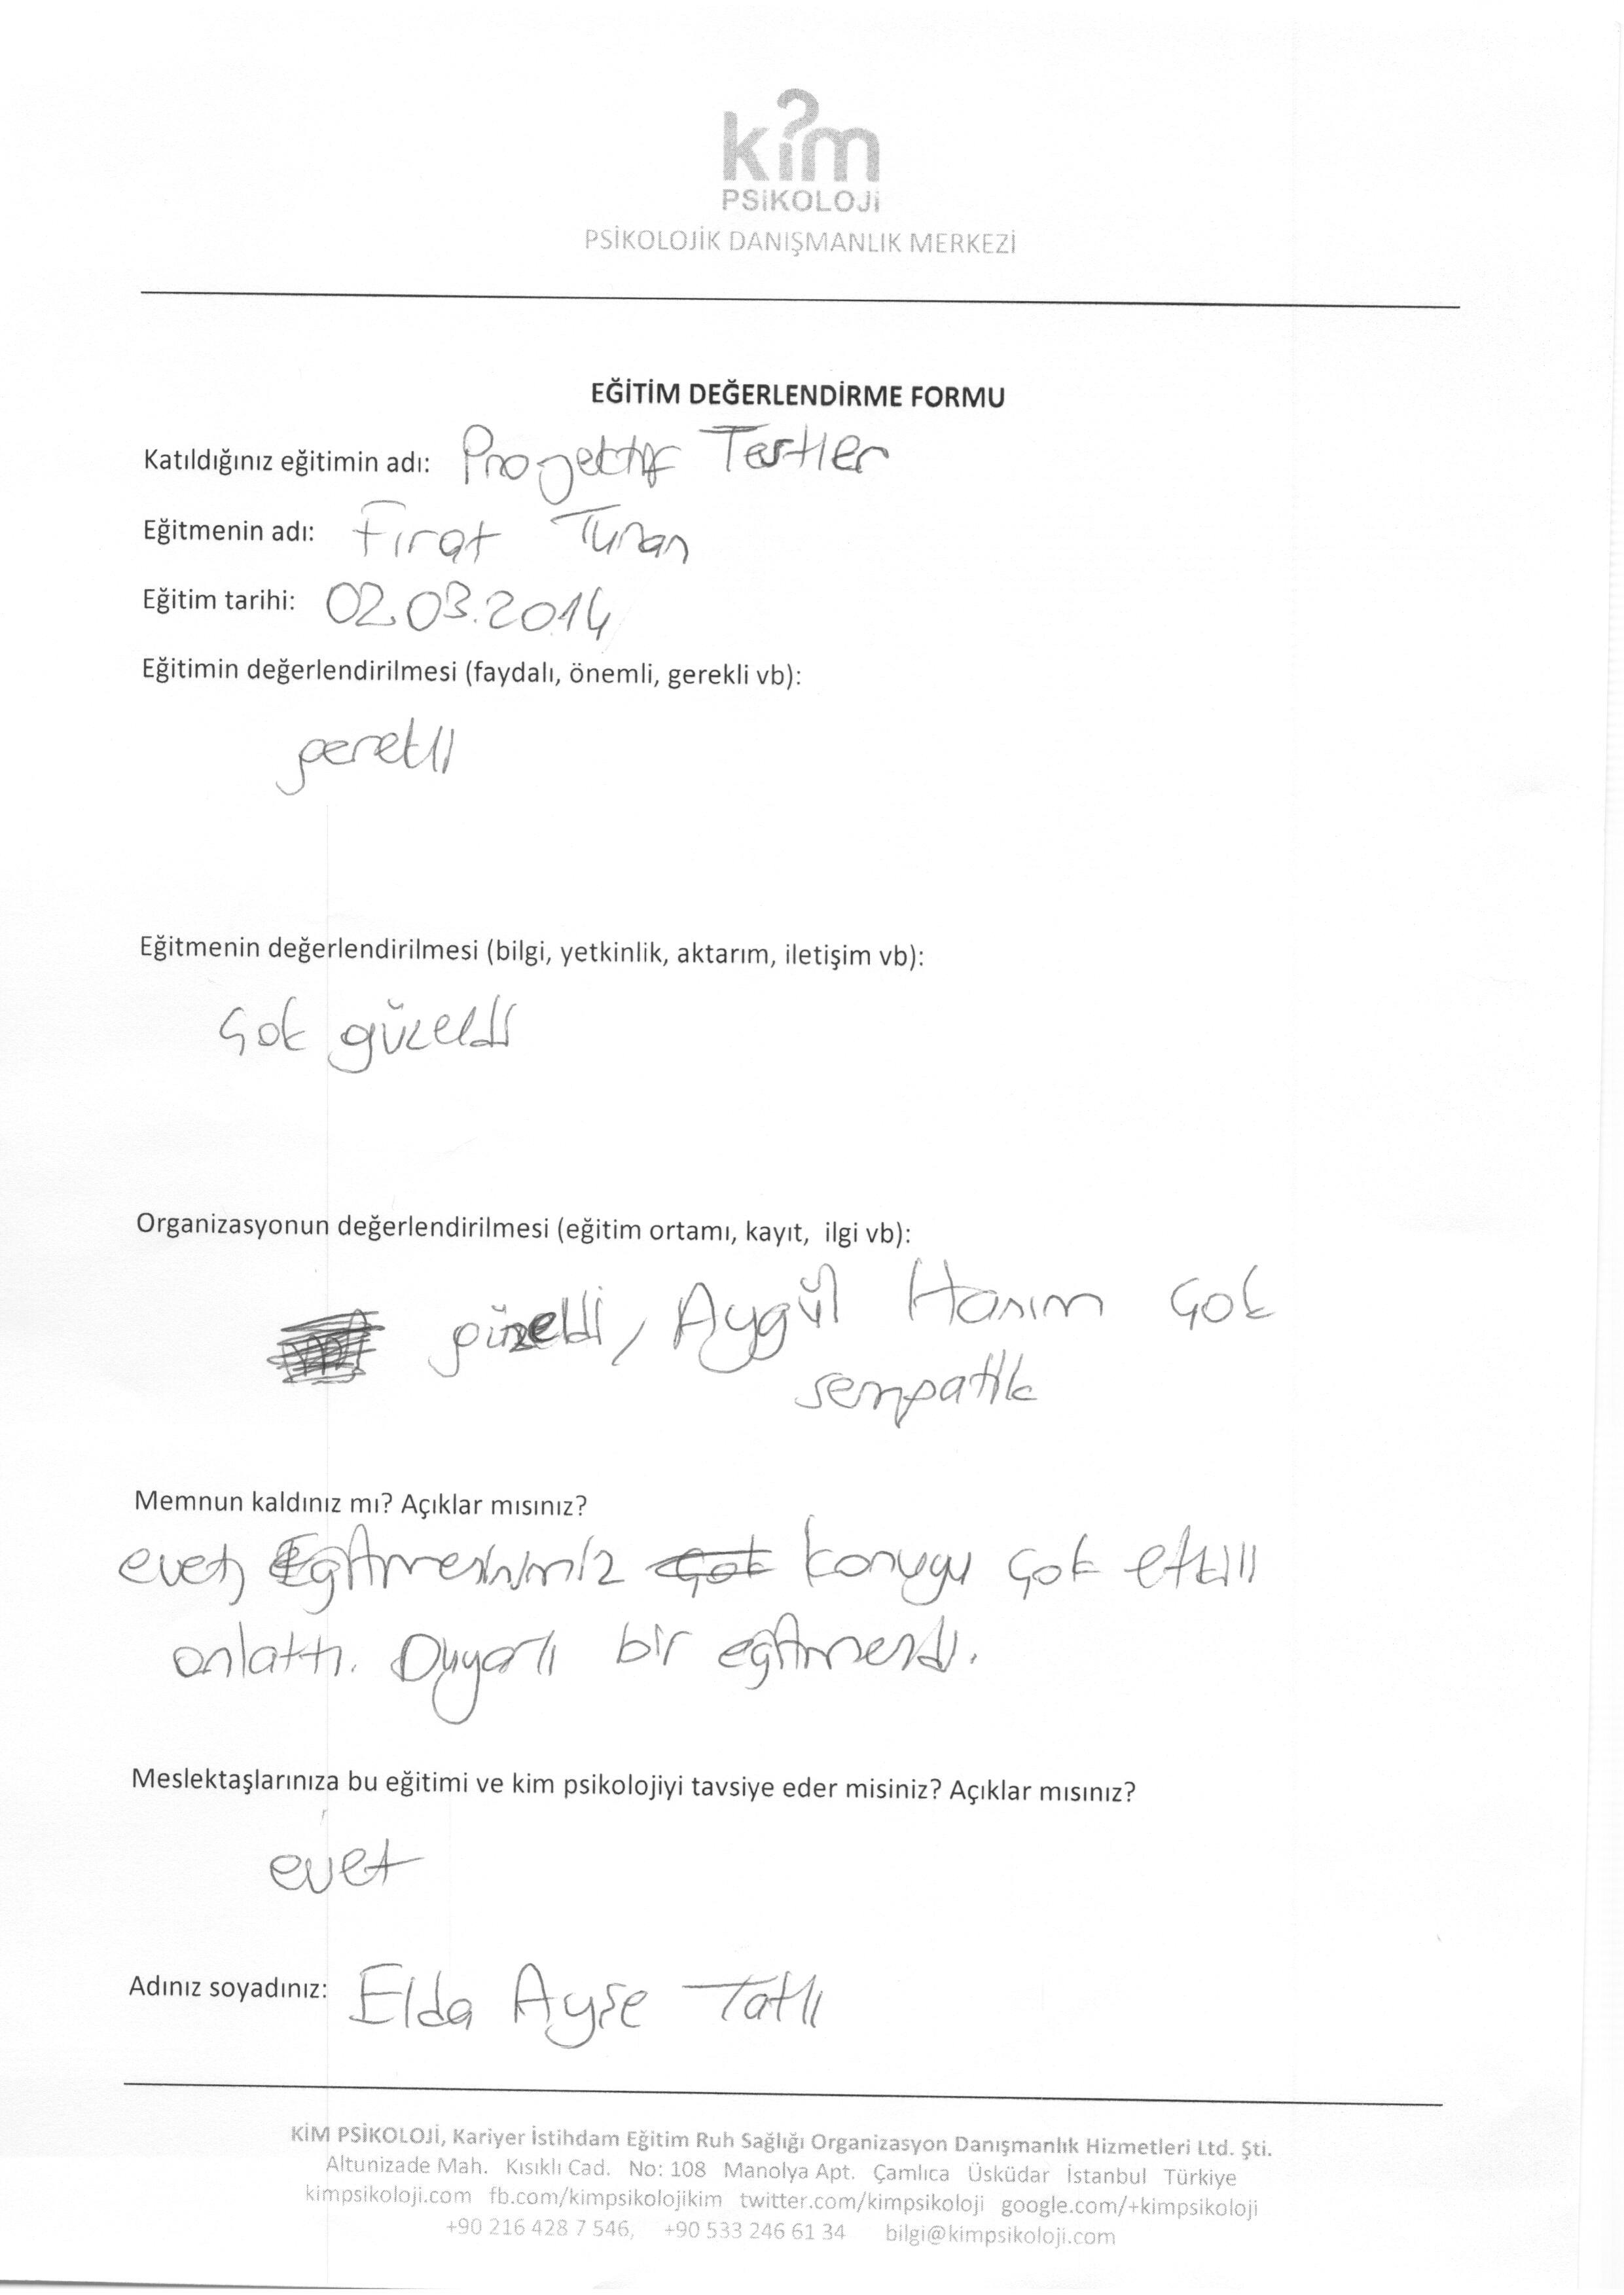 kim
PSİKOLOJİ
PSİKOLOJİK DANIŞMANLIK MERKEZİ
EĞİTİM DEĞERLENDİRME FORMU
Katıldığınız eğitimin adı: Projektif Testler
Eğitmenin adı: Fırat Turan
Eğitim tarihi: 02.03.2014
Eğitimin değerlendirilmesi (faydalı, önemli, gerekli vb):
gerekli
Eğitmenin değerlendirilmesi (bilgi, yetkinlik, aktarım, iletişim vb):
Çok güzeldi
Organizasyonun değerlendirilmesi (eğitim ortamı, kayıt, ilgi vb):
güzeldi, Aygül Hanım çok
sempatik
Memnun kaldınız mı? Açıklar mısınız?
evet, Eğitmenimiz çok konuyu çok etkili
anlattı. Duyarlı bir eğitmendi.
Meslektaşlarınıza bu eğitimi ve kim psikolojiyi tavsiye eder misiniz? Açıklar mısınız?
evet
Adınız soyadınız: Elda Ayşe Tatlı
KİM PSİKOLOJİ, Kariyer İstihdam Eğitim Ruh Sağlığı Organizasyon Danışmanlık Hizmetleri Ltd. Şti.
Altunizade Mah. Kısıklı Cad. No: 108 Manolya Apt. Çamlıca Üsküdar İstanbul Türkiye
kimpsikoloji.com fb.com/kimpsikolojikim twitter.com/kimpsikoloji google.com/+kimpsikoloji
+90 216 428 7 546, +90 533 246 61 34 bilgi@kimpsikoloji.com